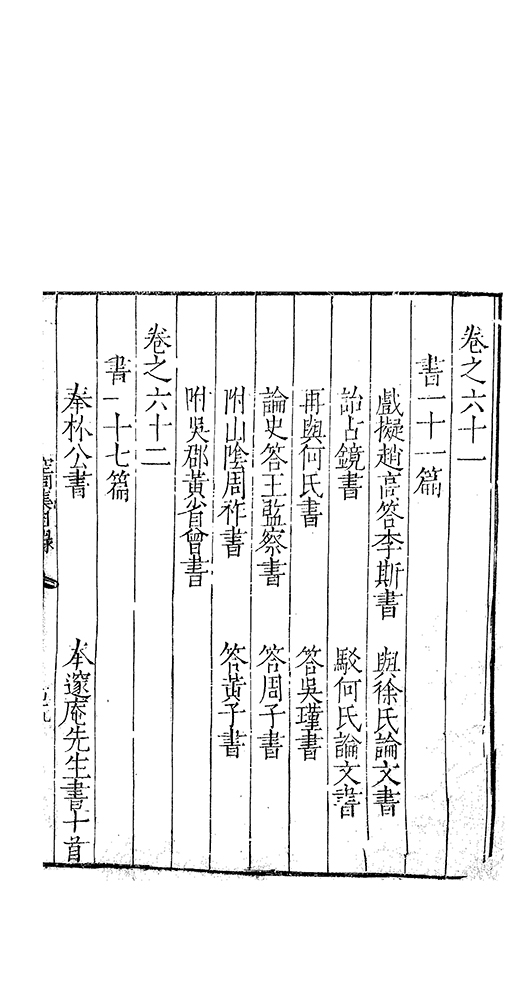 卷之六十一
書一十一篇
戲擬趙高答李斯書　與徐氏論文書
詒占鏡書　駁何氏論文書
再與何氏書　答吳瑾書
論史答王監察書　答周子書
附山陰周祚書　答黃子書
附吳郡黃省曾書
卷之六十二
書一十七篇
奉林公書　奉邃庵先生書十首
空同集目錄